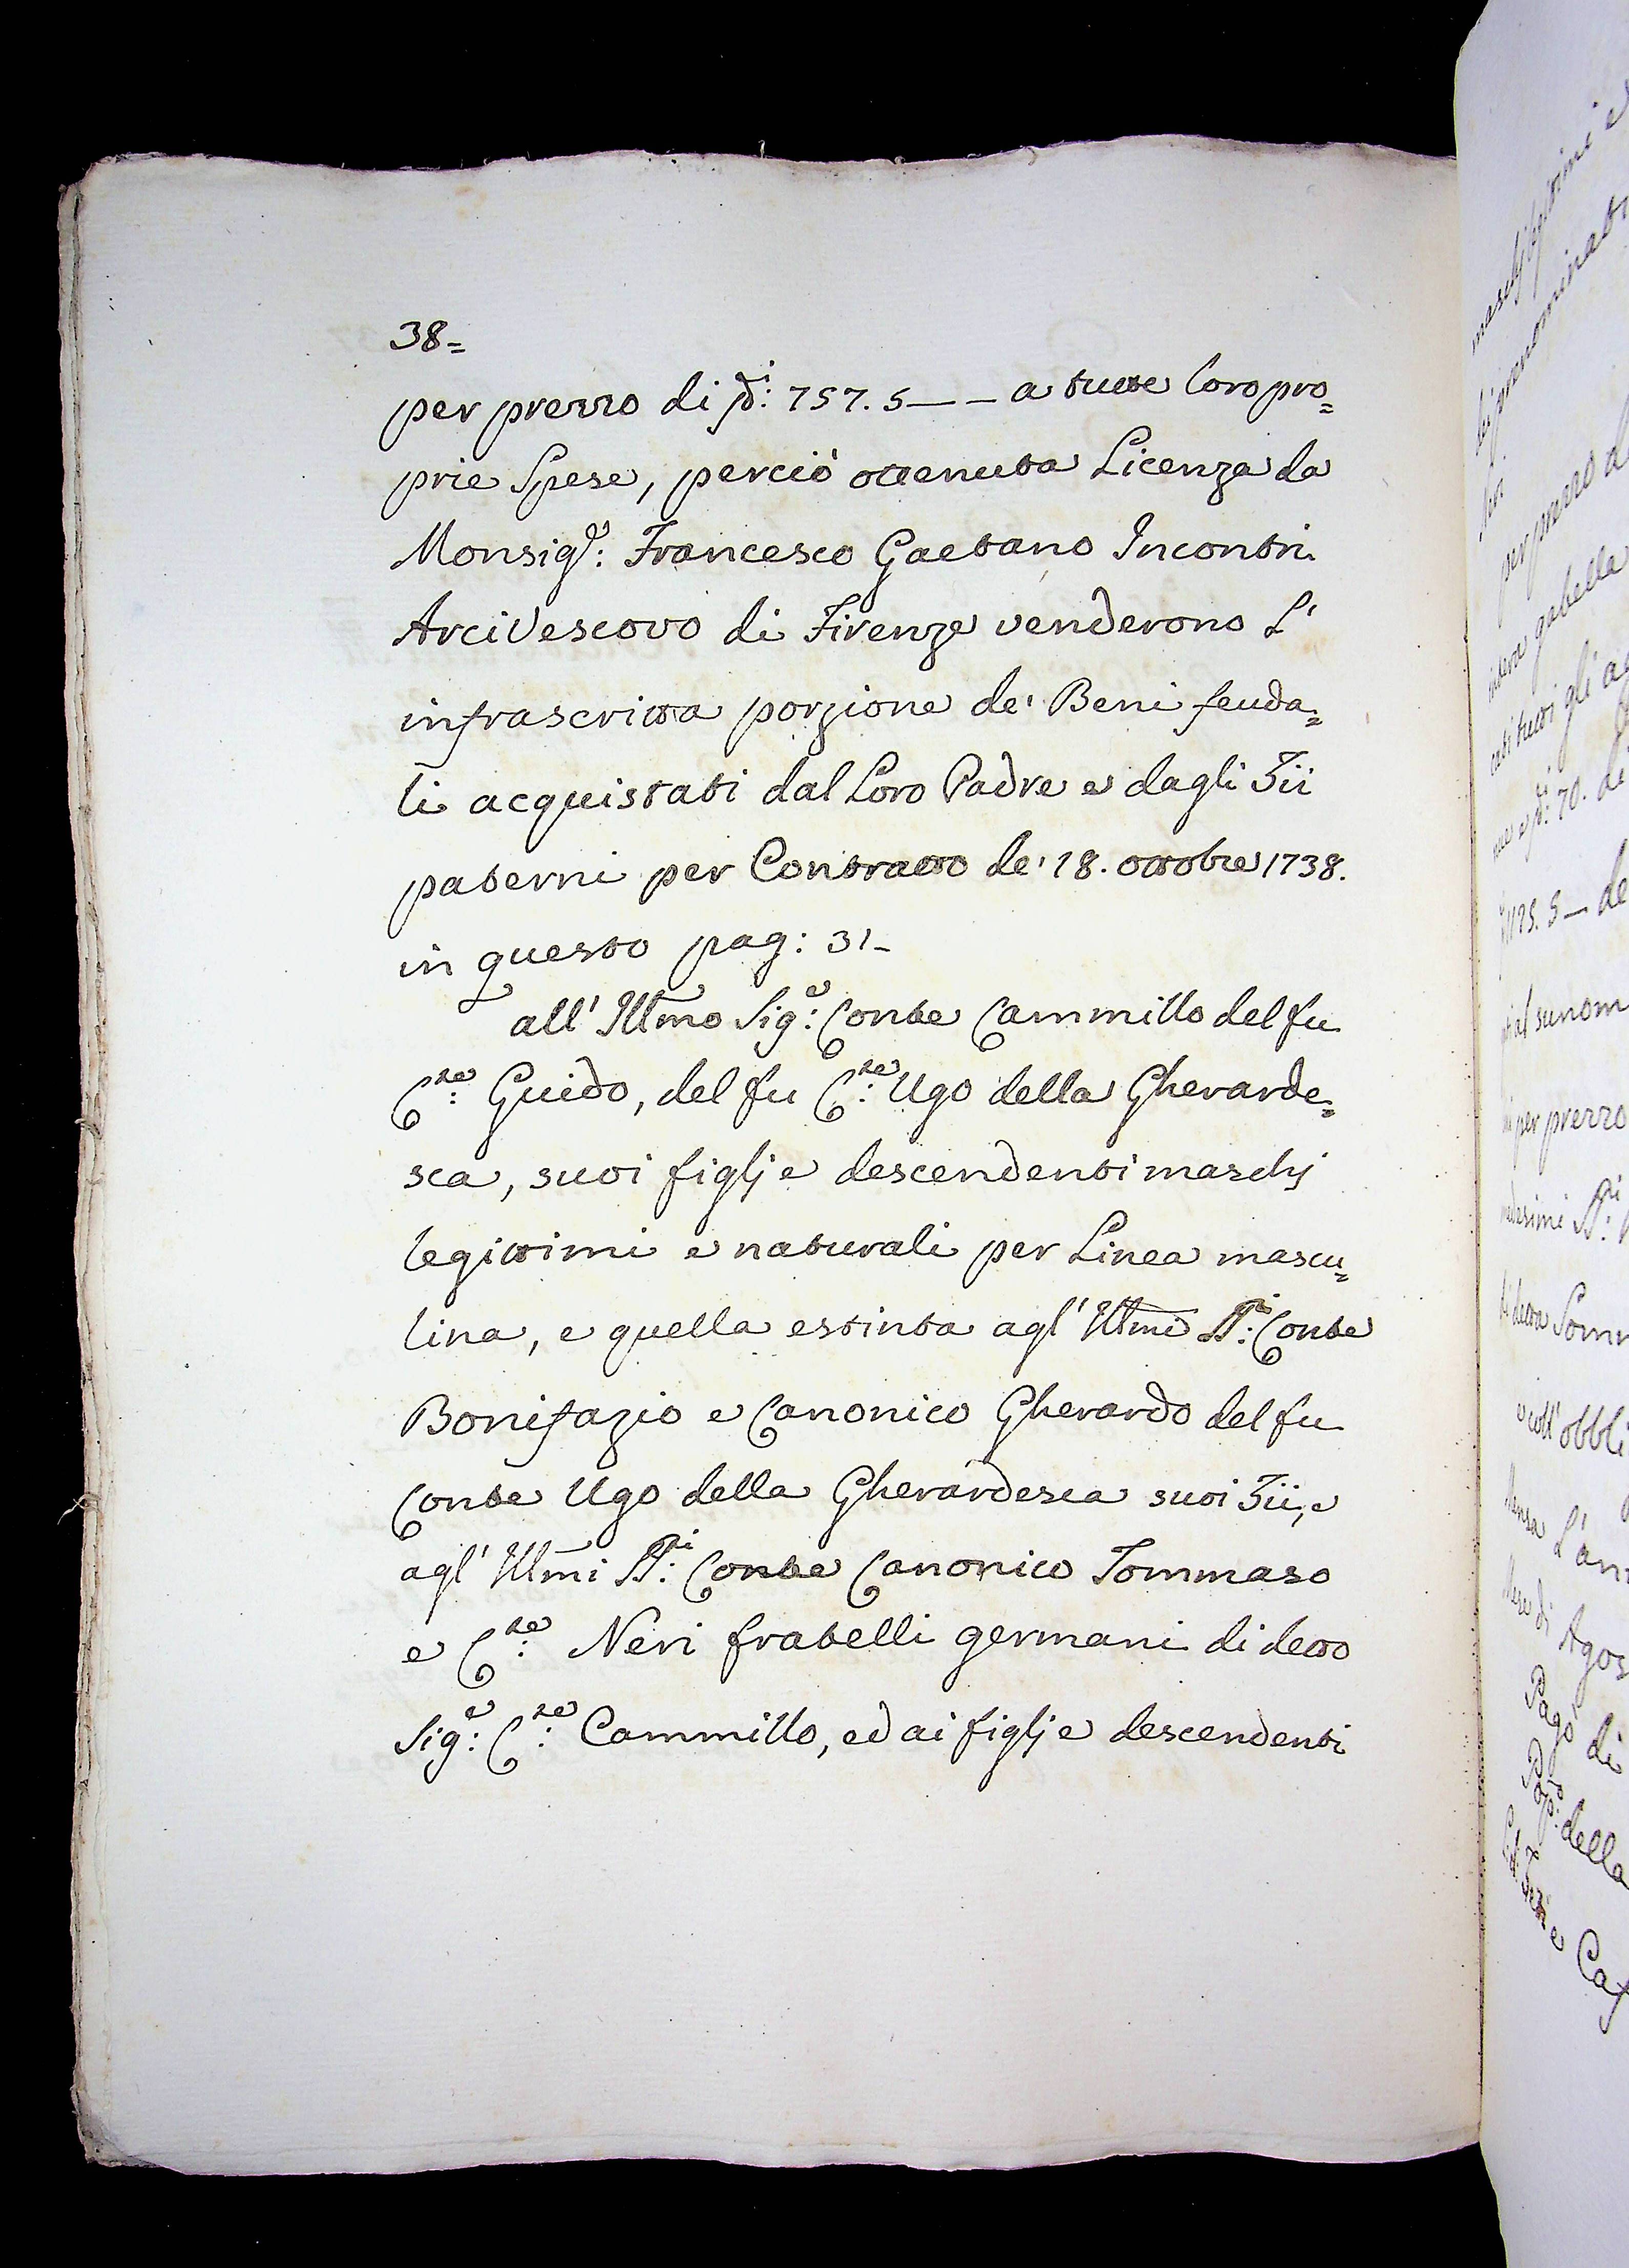 38=
per prezzo di s.di: 757. 5 — — a tutte loro pro=
prie Spese, perciò ottenuta Licenza da
Monsig.e: Francesco Gaetano Incontri
Arcivescovo di Firenze venderono L'
infrascritta porzione de' Beni feuda=
li acquistati dal Loro Padre e dagli Zii
paterni per Contratto de' 18. ottobre 1738.
in questo pag: 31 –
all' Illmo Sig.e: Conte Cammillo del fu
C.te: Guido, del fu C.te: Ugo della Gherarde=
sca, suoi figlj e descendenti maschj
legittimi e naturali per Linea mascu=
lina, e quella estinta agl' Illmi SS.ri: Conte
Bonifazio e Canonico Gherardo del fu
Conte Ugo della Gherardesca suoi Zii, e
agl' Illmi SS.ri: Conte Canonico Tommaso
e C.te: Neri fratelli germani di detto
Sig.e: C.te: Cammillo, ed ai figlj e descendenti
per prezzo d
gabella
tutti gli
70. di
5 — de
per prezzo
detta Som
coll' obbli
di Agos
Pagò di
della
e Ca